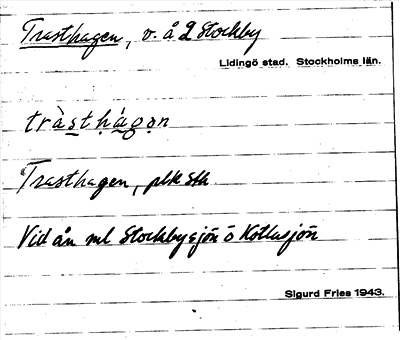 Trasthagen, v. å 2 Stockby
Lidingö stad. Stockholms län.
tràsthá̤gǝn
Trasthagen, plk Sth
Vid ån ml Stockbysjön o Kottlasjön
Sigurd Fries 1943.